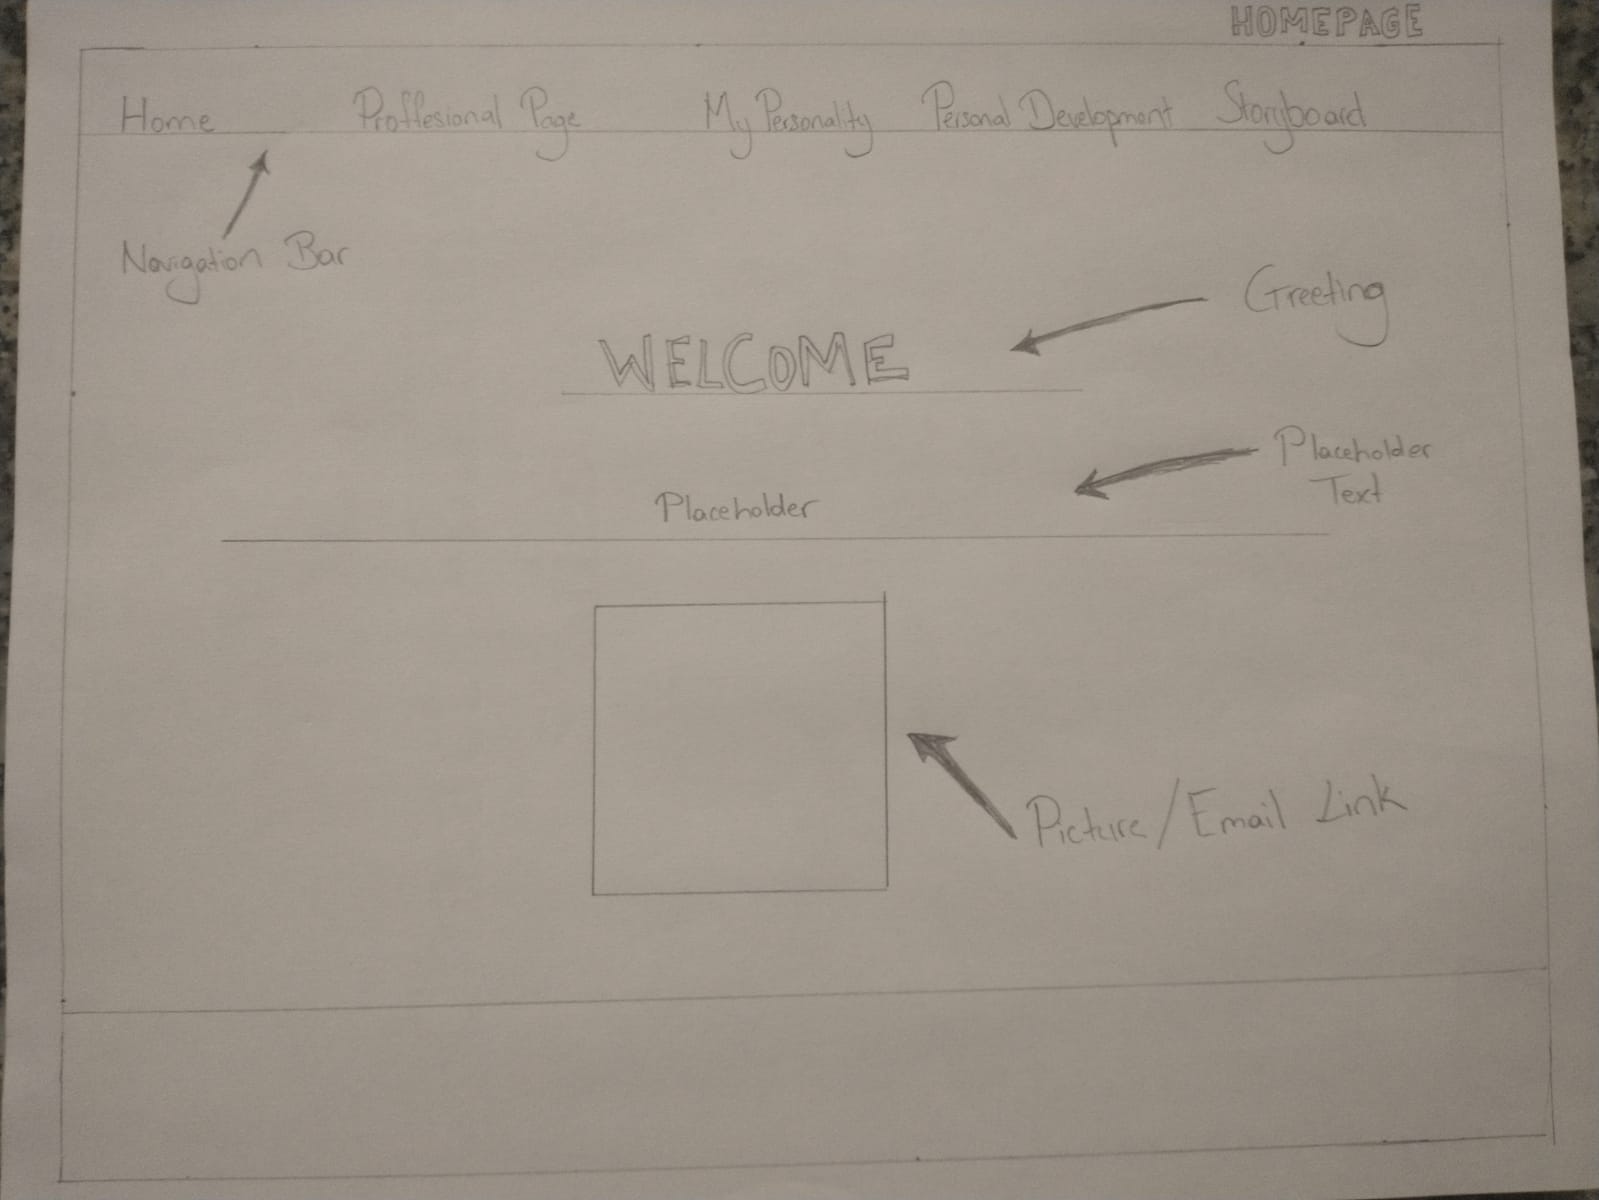 HOMEPAGE
Home Proffesional Page My Personality Personal Development Storyboard
Navigation Bar
Greeting
WELCOME
Placeholder
Text
Placeholder
Picture/Email Link